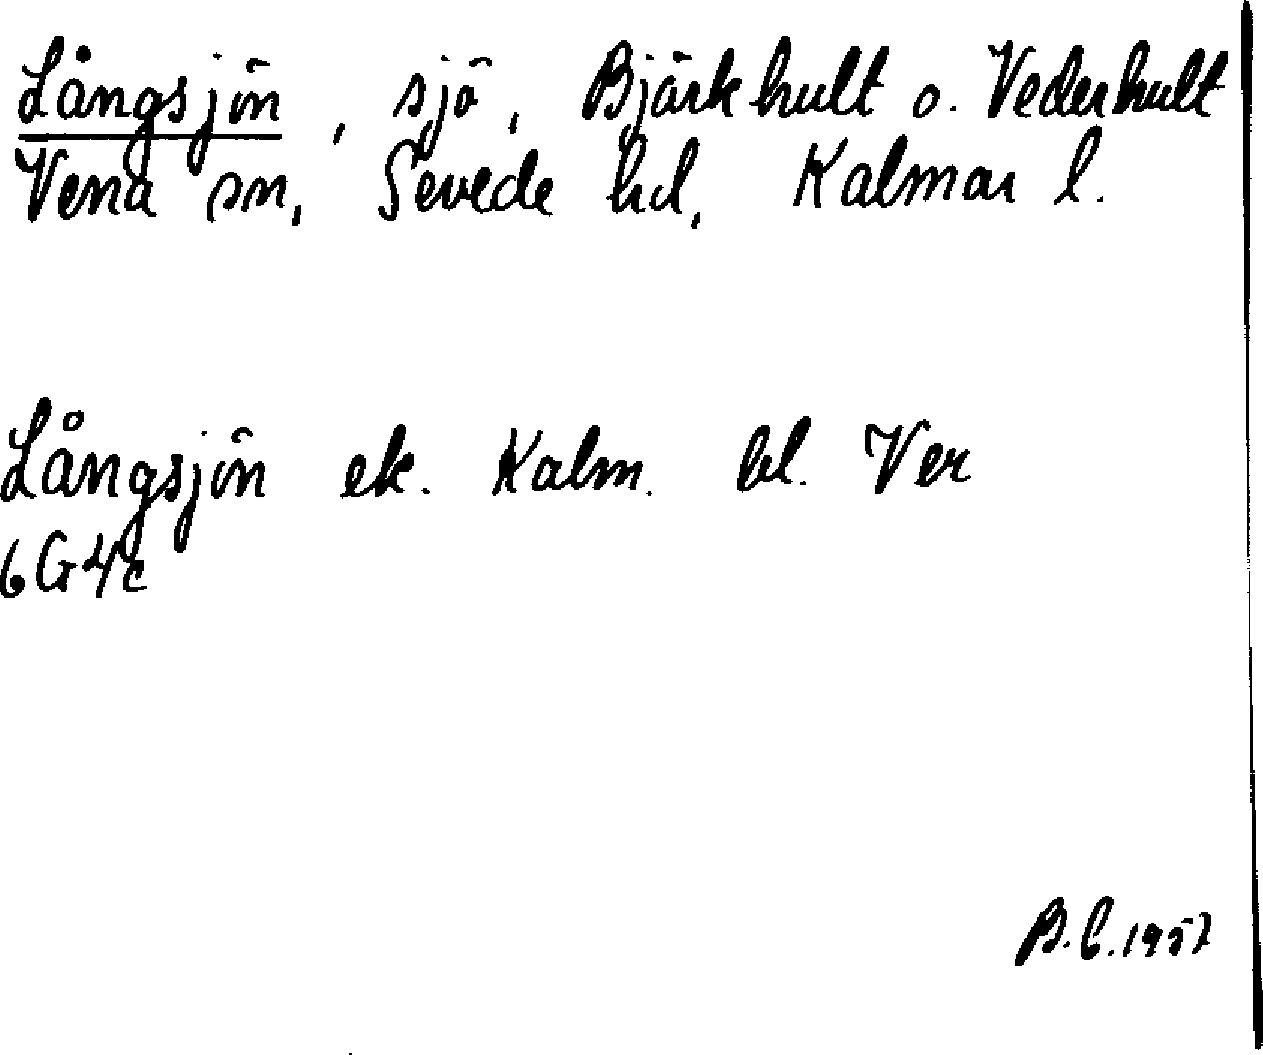 Långsjön, sjö, Bjärkhult o. Vederhult
Vena sn, Sevede hd, Kalmar l.
Långsjön ek. Kalm. bl. Ver
6G4c
B.C.1957